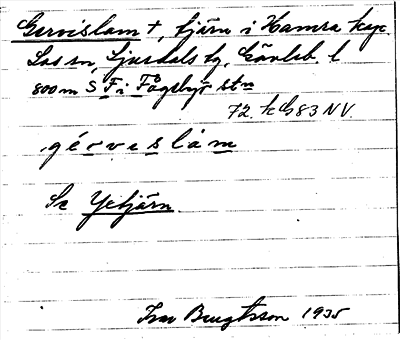 Gervislam +, tjärn i Hamra kap.
Los sn, Ljusdals tg, Gävleb. l
800 m S F i Fågelsjö stn
72. kG83 NV.
gérvislàm
Se Yctjärn
Bengtsson 1935